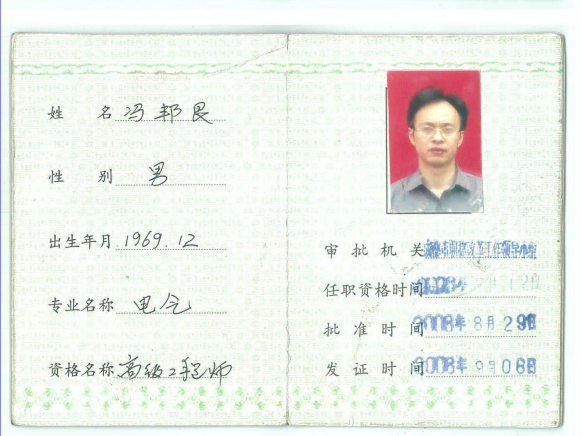 姓 名 冯邦良
性 别 男
出生年月 1969.12
专业名称 电气
资格名称 高级工程师
审批机关 市职称改革工作领导小组
任职资格时间 2008年
批准时间 2008年8月29日
发证时间 2008年9月08日